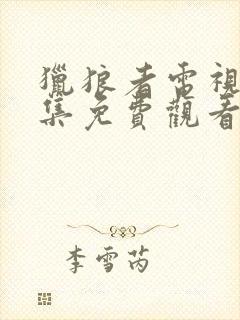 獵狼者電視
集免費觀看
李雪芮